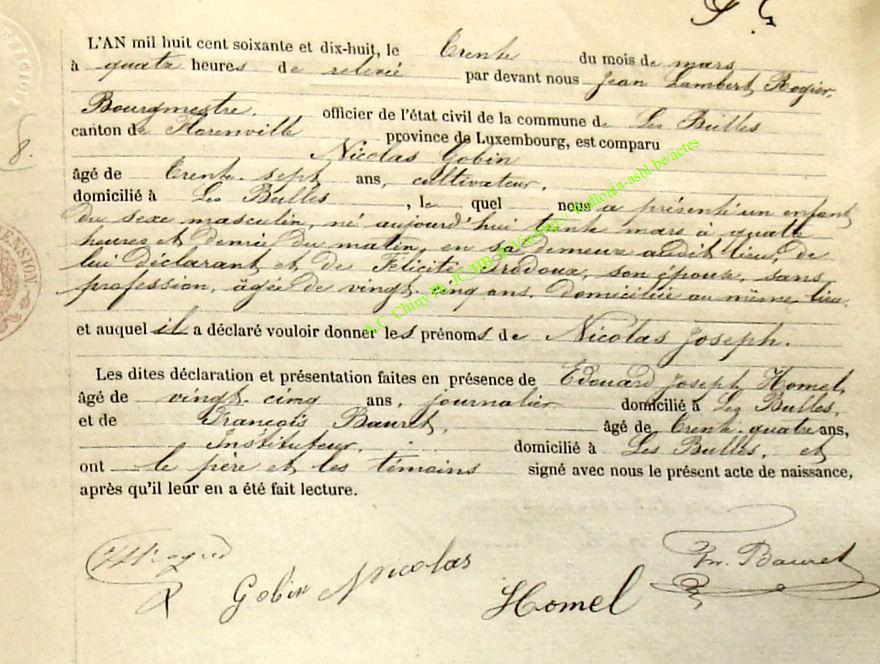 8.
L'AN mil huit cent soixante et dix-huit, le trente du mois de mars
à quatre heures de relevée par devant nous Jean Lambert Rogier,
Bourgmestre, officier de l'état civil de la commune de Les Bulles
canton de Florenville province de Luxembourg, est comparu
Nicolas Gobin
âgé de trente-sept ans, cultivateur,
domicilié à Les Bulles, le quel nous a présenté un enfant
du sexe masculin, né aujourd'hui trente mars à quatre
heures et demie du matin, en sa demeure audit lieu, de
lui déclarant et de Félicité son épouse, sans
profession, âgée de vingt-cinq ans, domiciliée au même lieu
et auquel il a déclaré vouloir donner les prénoms de Nicolas Joseph.
Les dites déclaration et présentation faites en présence de Edouard Joseph Homel
âgé de vingt-cinq ans, journalier domicilié à Les Bulles,
et de François Bauret, âgé de trente-quatre ans,
Instituteur, domicilié à Les Bulles, et
ont le père et les témoins signé avec nous le présent acte de naissance,
après qu'il leur en a été fait lecture.
Gobin Nicolas
Homel
Fr. Bauret